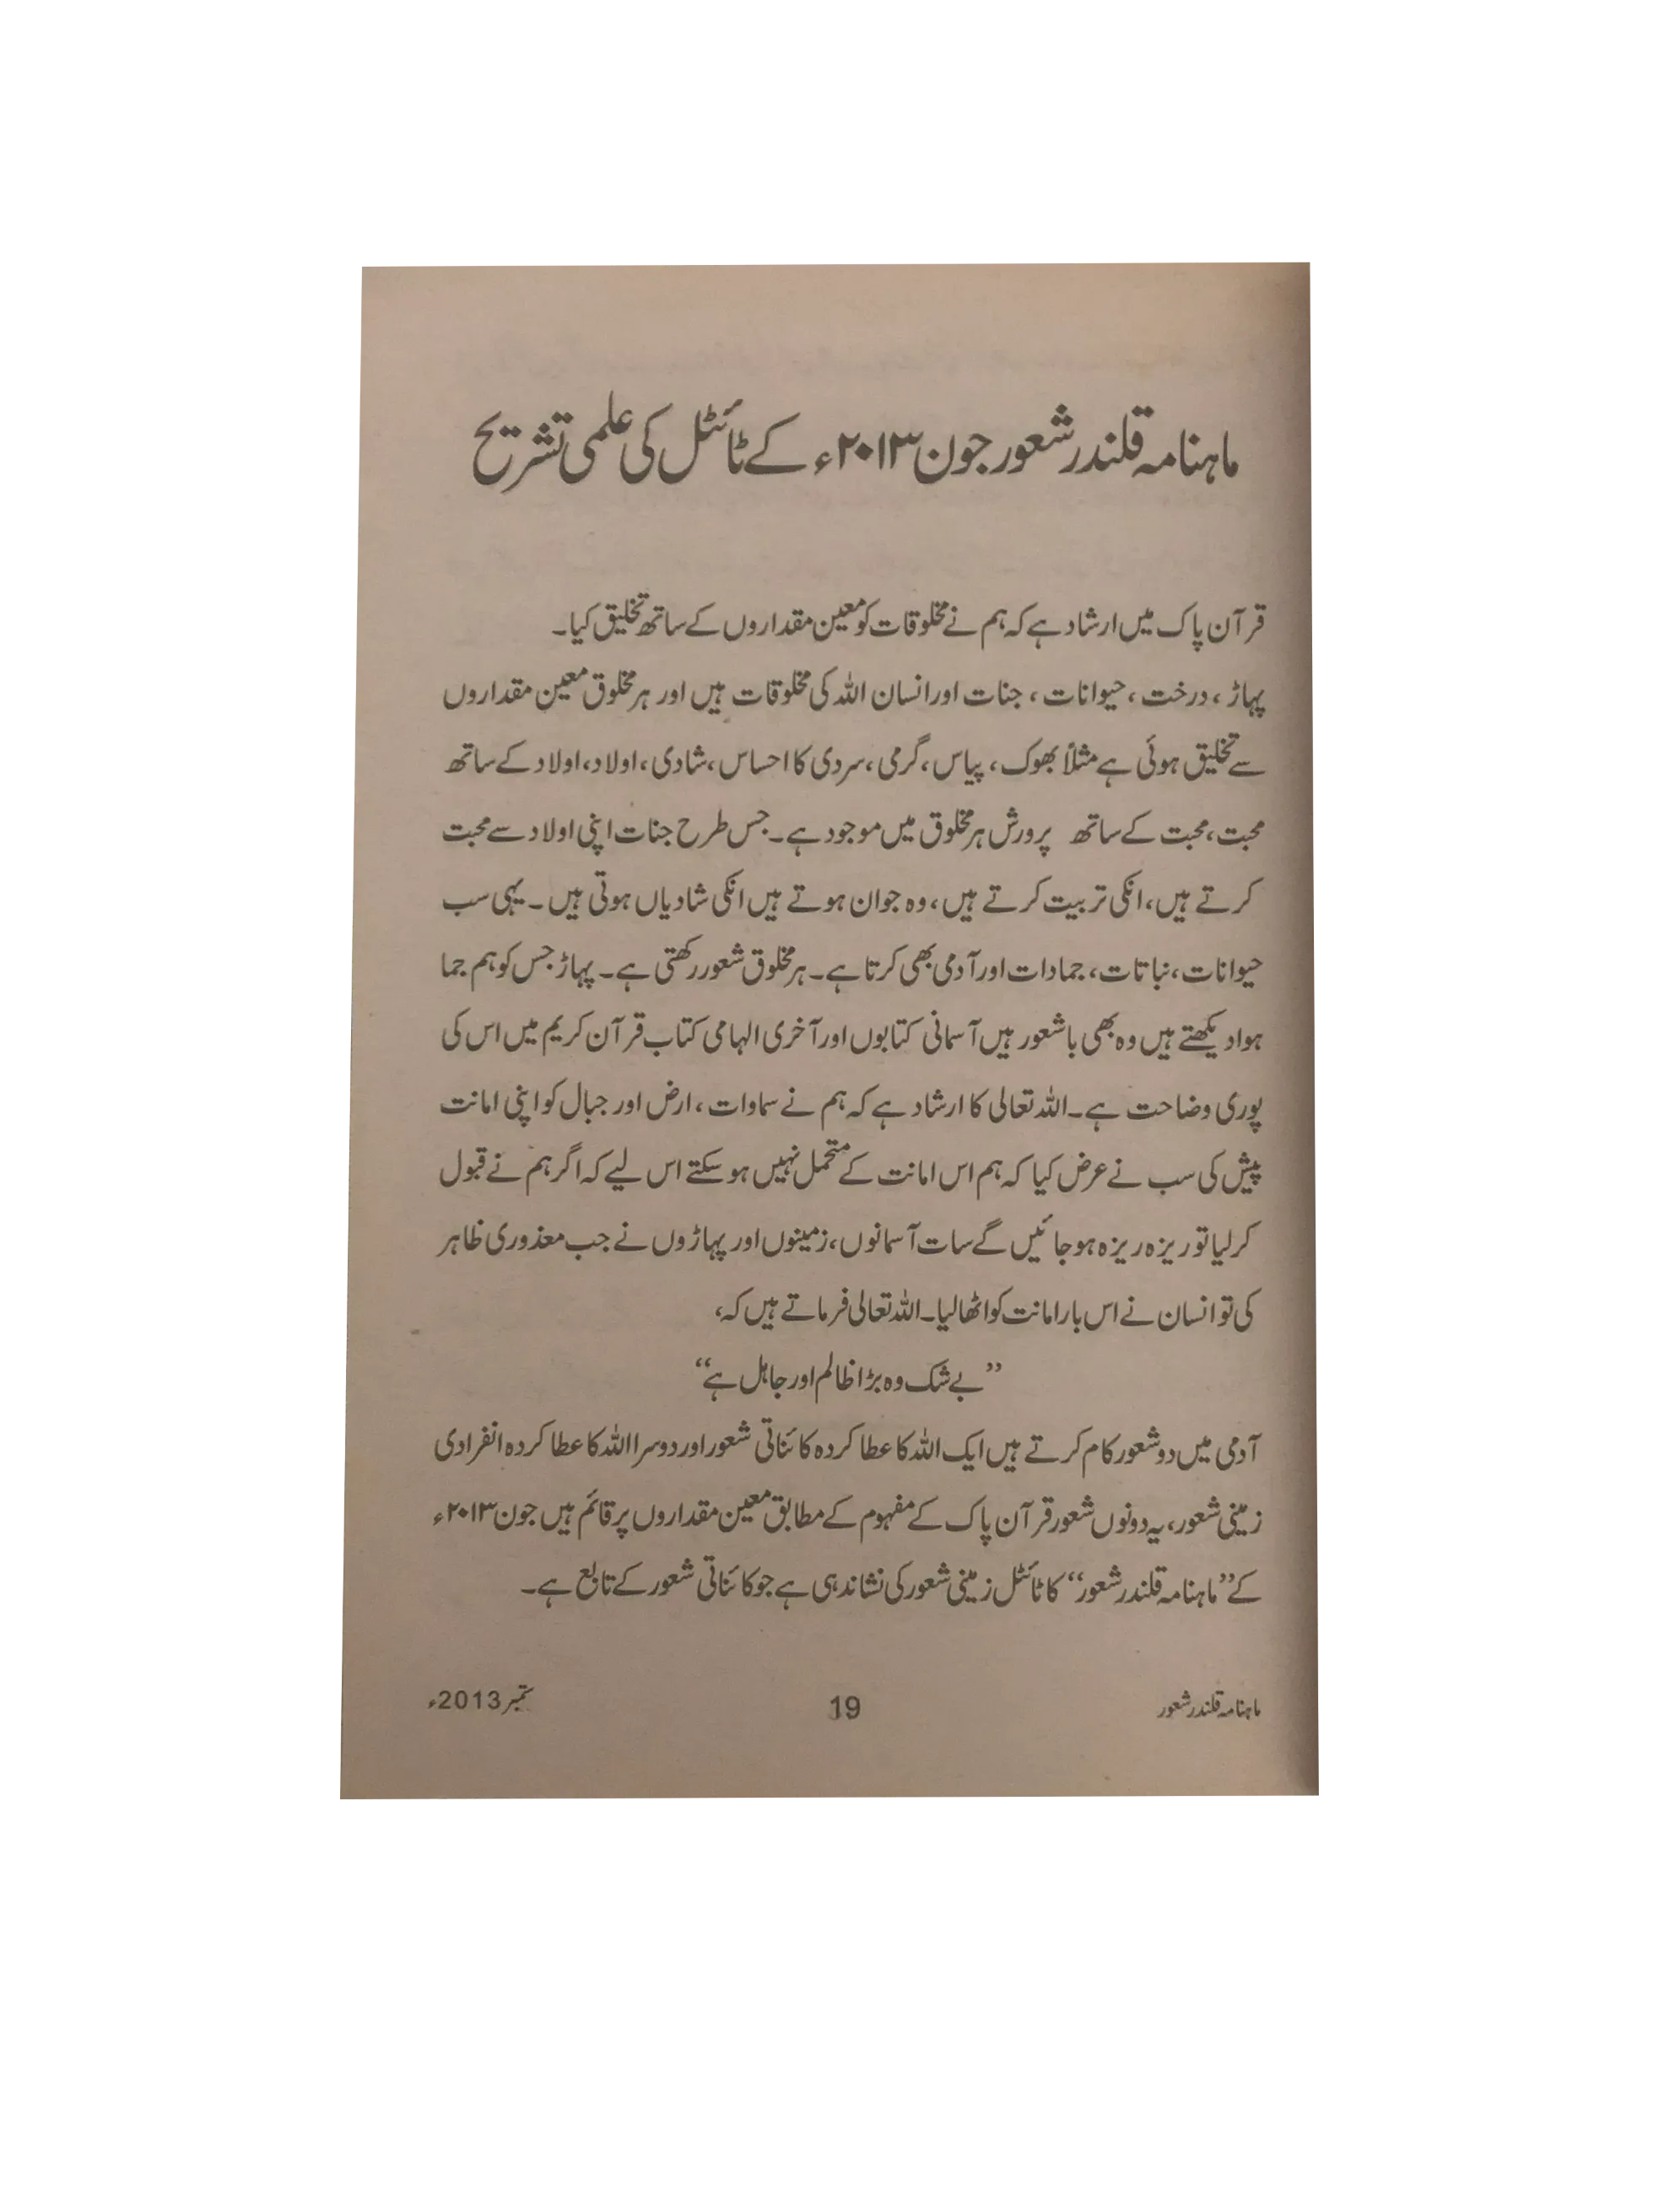 ماہنامہ قلندر شعور جون ۲۰۱۳ء کے ٹائٹل کی علمی تشریح
قرآن پاک میں ارشاد ہے کہ ہم نے مخلوقات کو معین مقداروں کے ساتھ تخلیق کیا۔
پہاڑ، درخت، حیوانات، جنات اور انسان اللہ کی مخلوقات ہیں اور ہر مخلوق معین مقداروں
سے تخلیق ہوئی ہے مثلاً بھوک، پیاس، گرمی، سردی کا احساس، شادی، اولاد، اولاد کے ساتھ
محبت، محبت کے ساتھ پرورش ہر مخلوق میں موجود ہے۔ جس طرح جنات اپنی اولاد سے محبت
کرتے ہیں، انکی تربیت کرتے ہیں، وہ جوان ہوتے ہیں انکی شادیاں ہوتی ہیں۔ یہی سب
حیوانات، نباتات، جمادات اور آدمی بھی کرتا ہے۔ ہر مخلوق شعور رکھتی ہے۔ پہاڑ جس کو ہم جما
ہوا دیکھتے ہیں وہ بھی با شعور ہیں آسمانی کتابوں اور آخری الہامی کتاب قرآن کریم میں اس کی
پوری وضاحت ہے۔ اللہ تعالی کا ارشاد ہے کہ ہم نے سماوات، ارض اور جبال کو اپنی امانت
پیش کی سب نے عرض کیا کہ ہم اس امانت کے متحمل نہیں ہو سکتے اس لیے کہ اگر ہم نے قبول
کرلیا تو ریزہ ریزہ ہو جائیں گے سات آسمانوں، زمینوں اور پہاڑوں نے جب معذوری ظاہر
کی تو انسان نے اس بار امانت کو اٹھا لیا۔ اللہ تعالی فرماتے ہیں کہ،
”بے شک وہ بڑا ظالم اور جاہل ہے“
آدمی میں دو شعور کام کرتے ہیں ایک اللہ کا عطا کردہ کائناتی شعور اور دوسرا اللہ کا عطا کردہ انفرادی
زمینی شعور، یہ دونوں شعور قرآن پاک کے مفہوم کے مطابق معین مقداروں پر قائم ہیں جون ۲۰۱۳ء
کے ”ماہنامہ قلندر شعور“ کا ٹائٹل زمینی شعور کی نشاندہی ہے جو کائناتی شعور کے تابع ہے۔
ماہنامہ قلندر شعور 19 ستمبر 2013ء